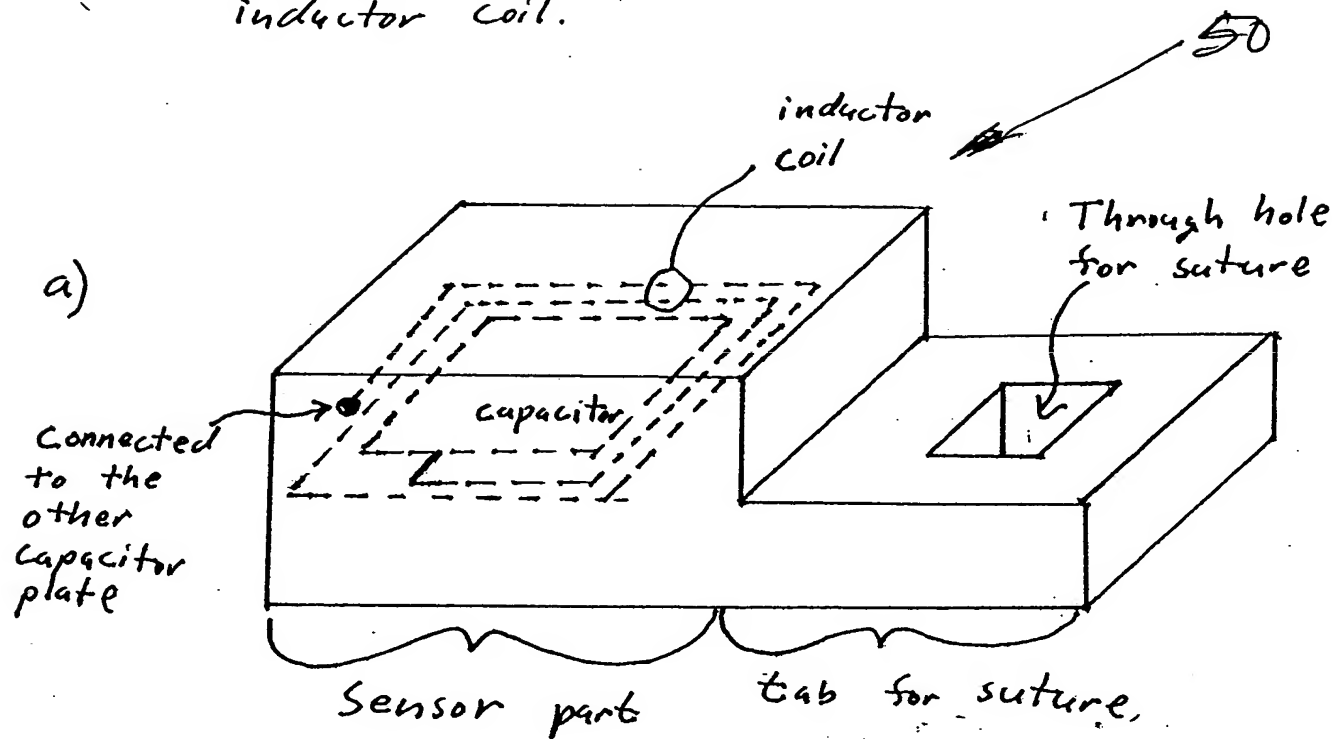 inductor coil.
50
inductor
coil
Through hole
for suture
a)
capacitor
Connected
to the
other
capacitor
plate
Sensor part
tab for suture.